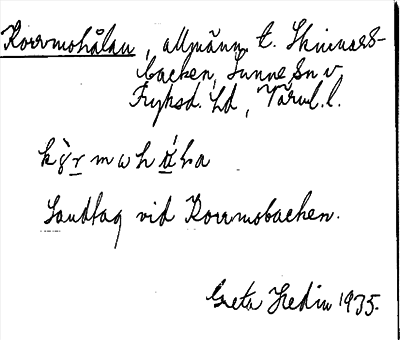 Korrmohålan, allmänn. t. Skinnars-
backen, Sunne Sn v.
Fryksd. hd, Värml. l.
Sandtag vid Korrmobacken.
Greta Hedin 1935.